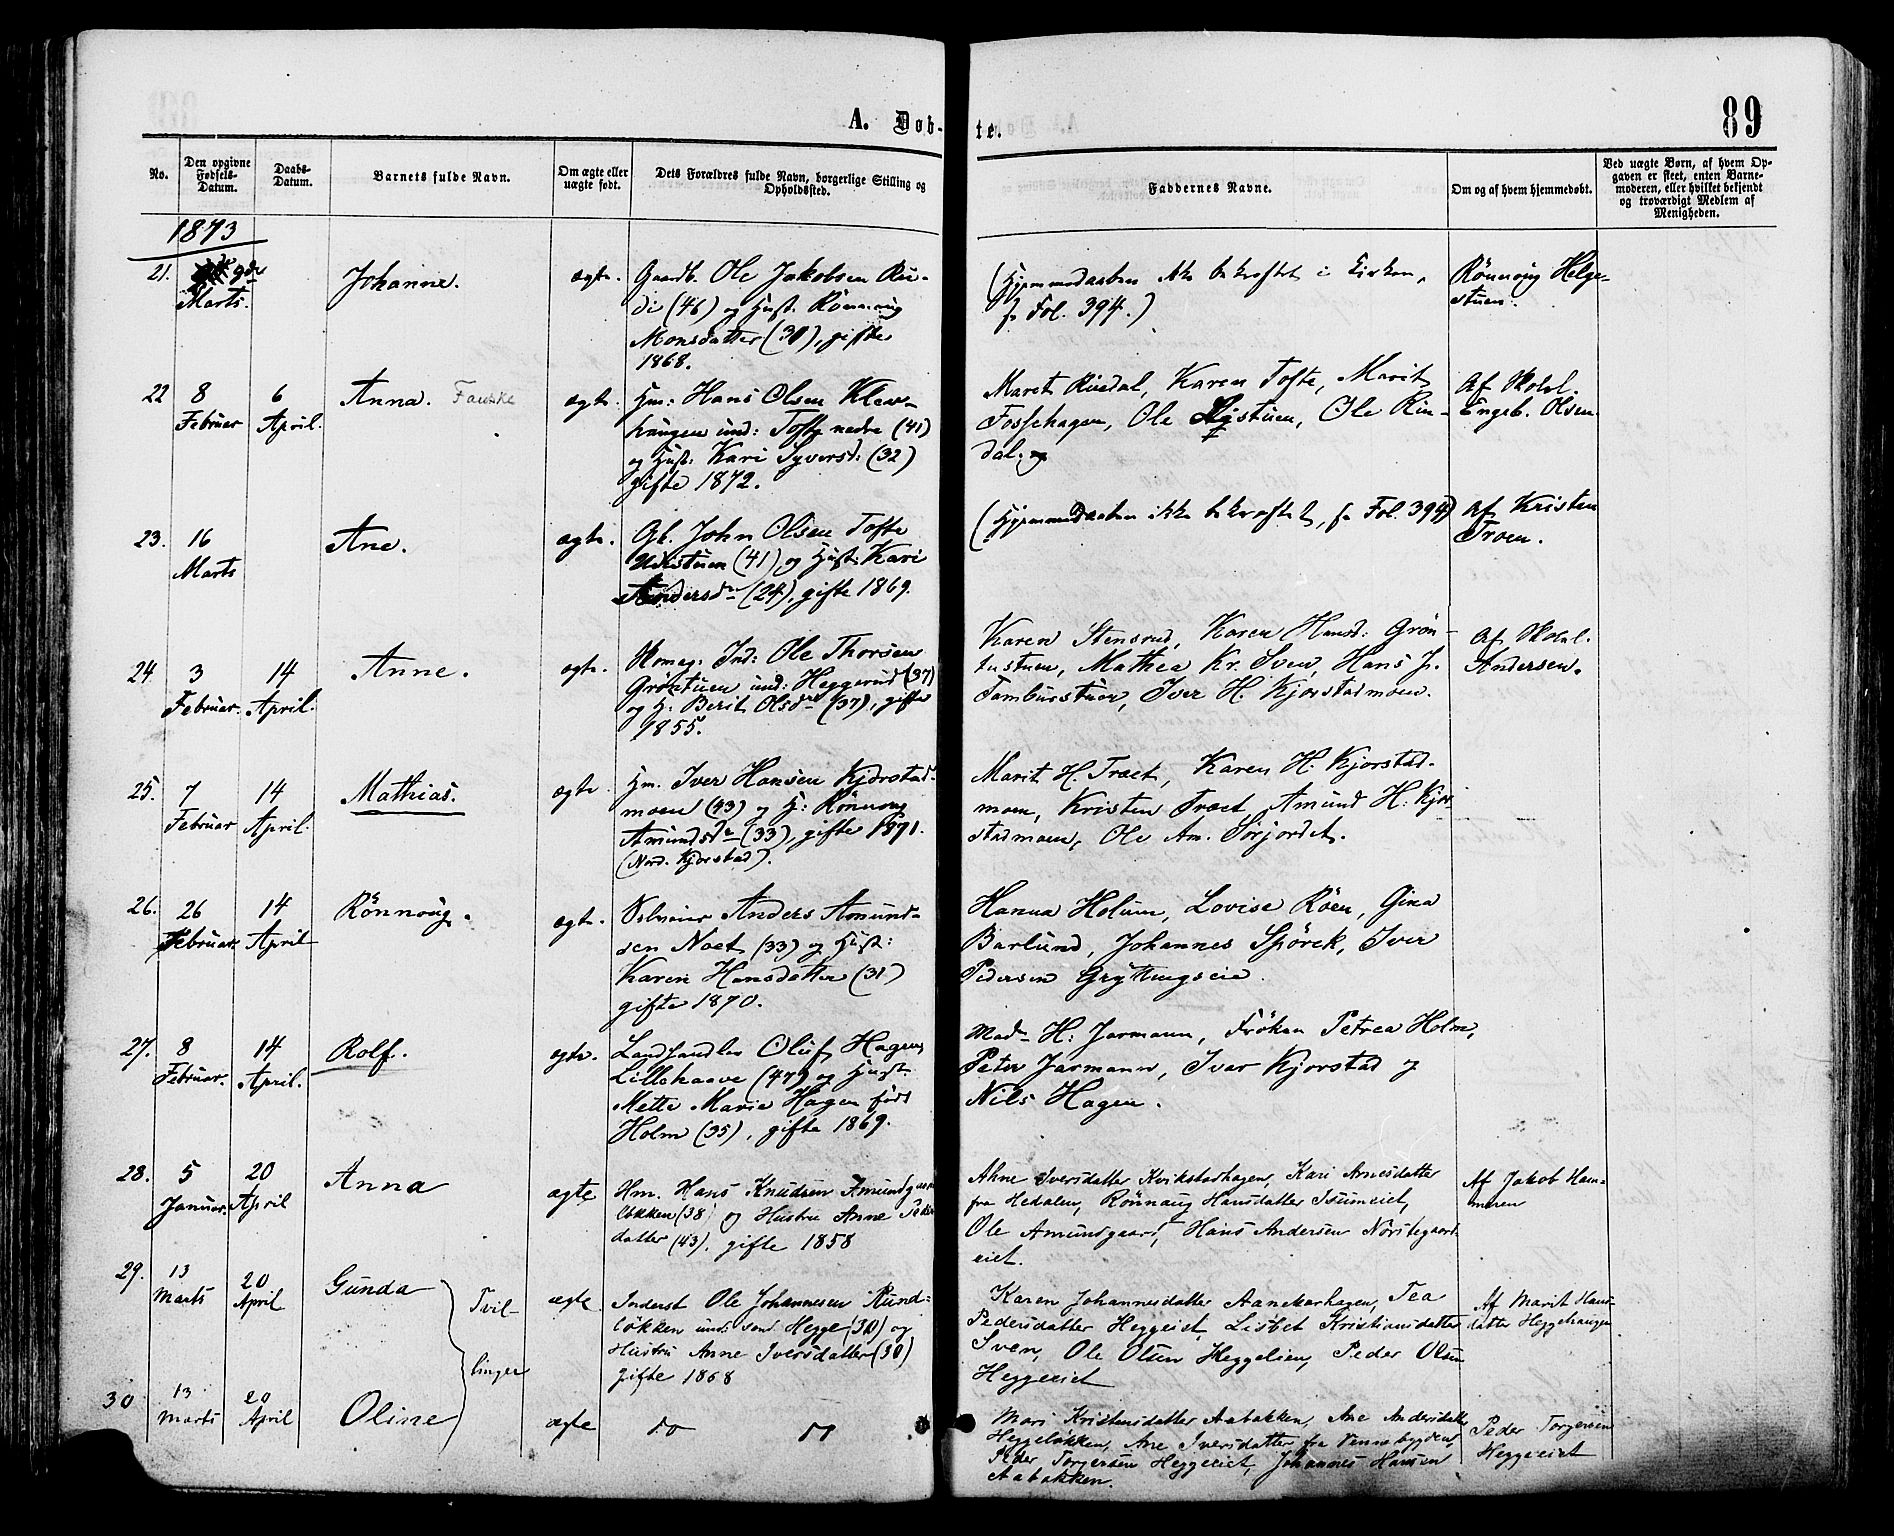 89
A. Døb-te.
No.
Den opgivne Fødsels-Datum.
Daabs-Datum.
Barnets fulde Navn.
Om ægte eller uægte født.
Dets Forældres fulde Navn, borgerlige Stilling og Opholdssted.
Faddernes Navne.
Om og af hvem hjemmedøbt.
Ved uægte Børn, af hvem Opgaven er skeet, enten Barnemoderen, eller hvilket bekjendt og troværdigt Medlem af Menigheden.
1873
21. 9de Marts. Johanne. ægte.
Gaardb. Ole Jakobsen Ru-
di (46) og Hust. Rönnaug
Monsdatter (30), gifte
1868.
(Hjemmedaaben ikke bekræftet i Kirken,
fr Fol. 394.)
Rönnaug Helge-
stuen.
22 8 Februar 6 April. Anna. Fauske ægte.
Hm: Hans Olsen Klev-
haugen und: Tofte nedre (41)
og Hust: Kari Syversd: (32)
gifte 1872.
Maret Rindal, Karen Tofte, Marit
Fossehagen, Ole Lystuen, Ole Rin-
dal.
Af Skolel.
Engeb. Olsen
23. 16 Marts Ane. ægte.
Gb. John Olsen Tofte
(41) og Hust. Kari
Andersdr (24), gifte 1869.
(Hjemmedaaben ikke bekræftet, fr Fol. 394)
Af Kristen
Troen.
24. 3 Februar. 14 April. Anne. ægte.
Skomag: Ind: Ole Thorsen
Gröntuen und: Heggerud (37)
og H. Berit Olsdr (37), gifte
1855.
Karen Stensrud, Karen Hansd: Grön-
tustuen, Mathea Kr. Sven, Hans J.
Tambursstuen, Iver H. Kjorstadmoen.
Af Skolel.
Andersen.
25. 7 Februar 14 April. Mathias. ægte.
Hm. Iver Hansen Kjörstad-
moen (43) og H: Rönnoug
Amundsdr (33), gifte 1871.
(Nord. Kjørstad).
Marit H. Træet, Karen H. Kjorstad-
moen, Kristen Træet, Amund H. Kjor-
stadmoen, Ole Am. Sørjordet.
26. 26 Februar. 14 April Rönnoug. ægte.
Selveier Anders Amund-
sen Noet (33) og Hust:
Karen Hansdatter (31)
gifte 1870.
Hanna Holum, Lovise Röen, Gina
Barlund, Johannes Spörck, Iver
Pedersen Gryttingseie.
27. 8 Februar. 14 April. Rolf. ægte.
Landhandler Oluf Hagen
Lillehaave (47) og Hust.
Mette Marie Hagen født
Holm (35), gifte 1869.
Mad- H: Jarmann, Frøken Petrea Holm,
Peter Jarmann, Ivar Kjorstad og
Nils Hagen.
28. 5 Januar. 20 April Anna ægte
Hm. Hans Knudsen Amundgaard
løkken (38) og Hustru Anne Peder
datter (43), gifte 1858
Ahne Iversdatter Kvikstadhagen, Kari Arnesdatter
fra Hedalen, Rönnaug Hansdatter Isumeiet,
Ole Amundgaard, Hans Andersen Nörstegaard
eiet.
Af Jakob Ham-
meren
29. 13 Marts 20 April Gunda Tvil ægte
Inderst Ole Johannesen Rund-
løkken und: sönd. Hegge (30) og
Hustru Anne Iversdatter (30)
gifte 1868
Karen Johannesdatter Aanekerhagen, Tea
Pedersdatter Heggeiet, Lisbet Kristiansdatter
Sven, Ole Olsen Heggelien, Peder Olsen
Heggeeiet
Af Marit Hans-
datter Heggehaugen
30 13 Marts 20 April Oline linger ægte do
Mari Kristensdatter Aabakken, Ane Andersdatter
Heggeløkken, Ane Iversdatter fra Vennebygden,
Peder Torgersen Heggeeiet, Johannes Hansen
Aabakken.
Peder Torgersen
Heggeeiet